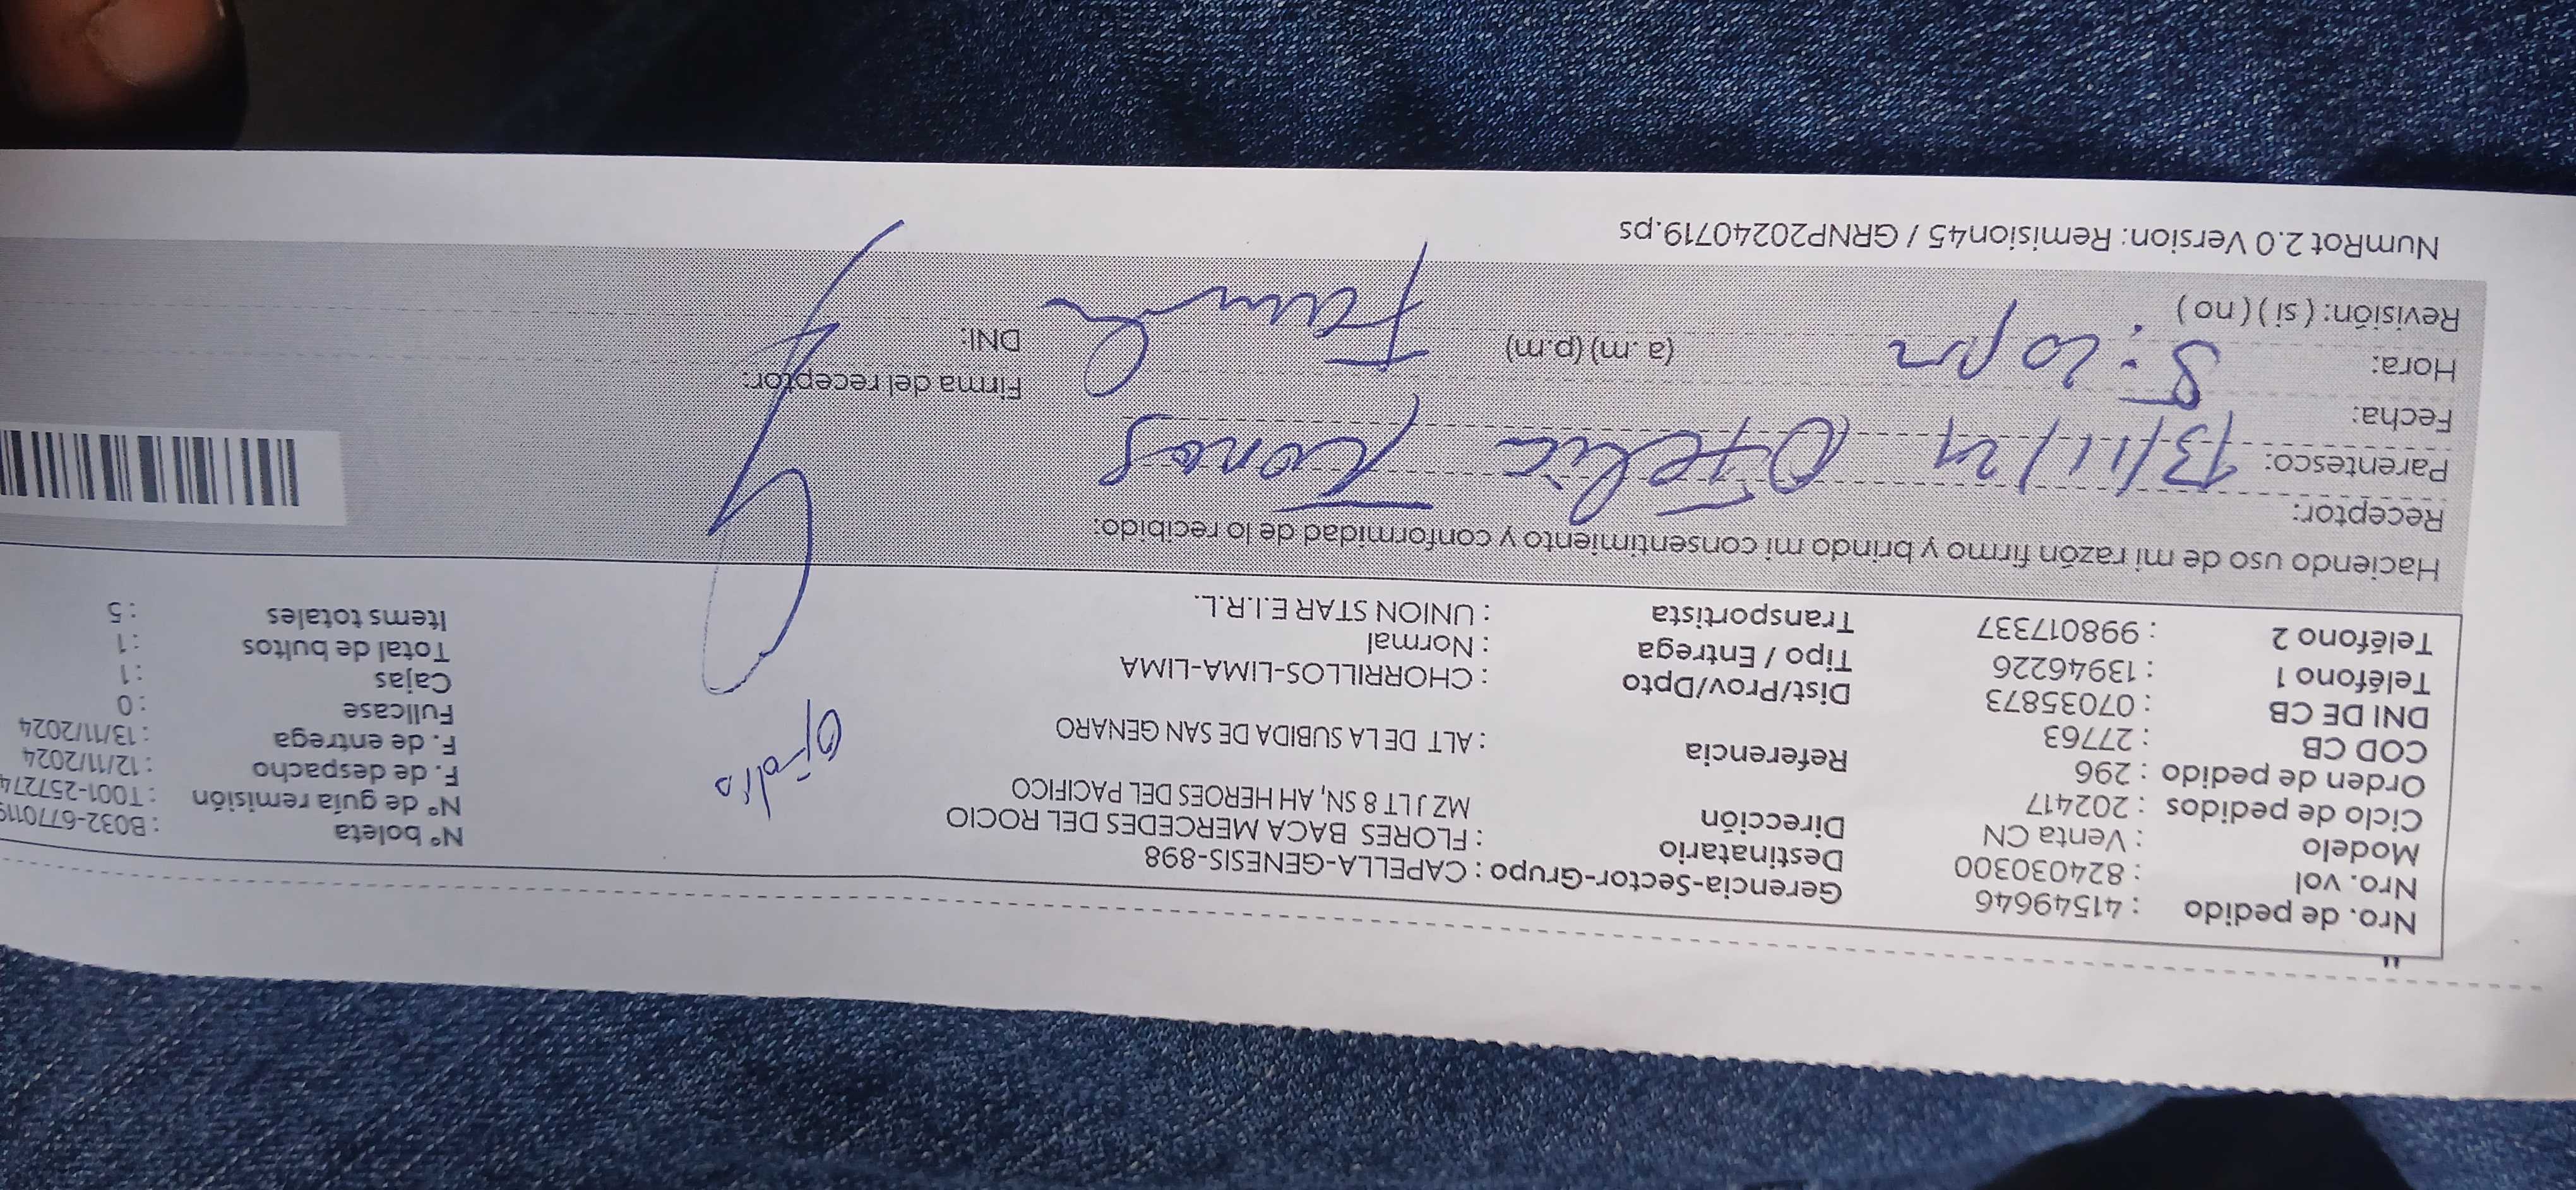 Nro. de pedido : 41549646
Nro. vol : 824030300
Modelo : Venta CN
Ciclo de pedidos : 202417
Orden de pedido : 296
COD CB : 27763
DNI DE CB : 07035873
Teléfono 1 : 13946226
Teléfono 2 : 998017337
Gerencia-Sector-Grupo : CAPELLA-GENESIS-898
Destinatario : FLORES BACA MERCEDES DEL ROCIO
Dirección MZ J LT 8 SN, AH HEROES DEL PACIFICO
Referencia : ALT DE LA SUBIDA DE SAN GENARO
Dist/Prov/Dpto : CHORRILLOS-LIMA-LIMA
Tipo / Entrega : Normal
Transportista : UNION STAR E.I.R.L.
N° boleta : B032-677011
N° de guía remisión : T001-257274
F. de despacho : 12/11/2024
F. de entrega : 13/11/2024
Fullcase : 0
Cajas : 1
Total de bultos : 1
Items totales : 5
Ofelia
Haciendo uso de mi razón firmo y brindo mi consentimiento y conformidad de lo recibido:
Receptor:
Parentesco: 13/11/24 Ofelia
Fecha:
Hora: 5:20 pm (a.m) (p.m)
Revisión: ( si ) ( no )
Firma del receptor:
DNI:
NumRot 2.0 Version: Remision45 / GRNP20240719.ps